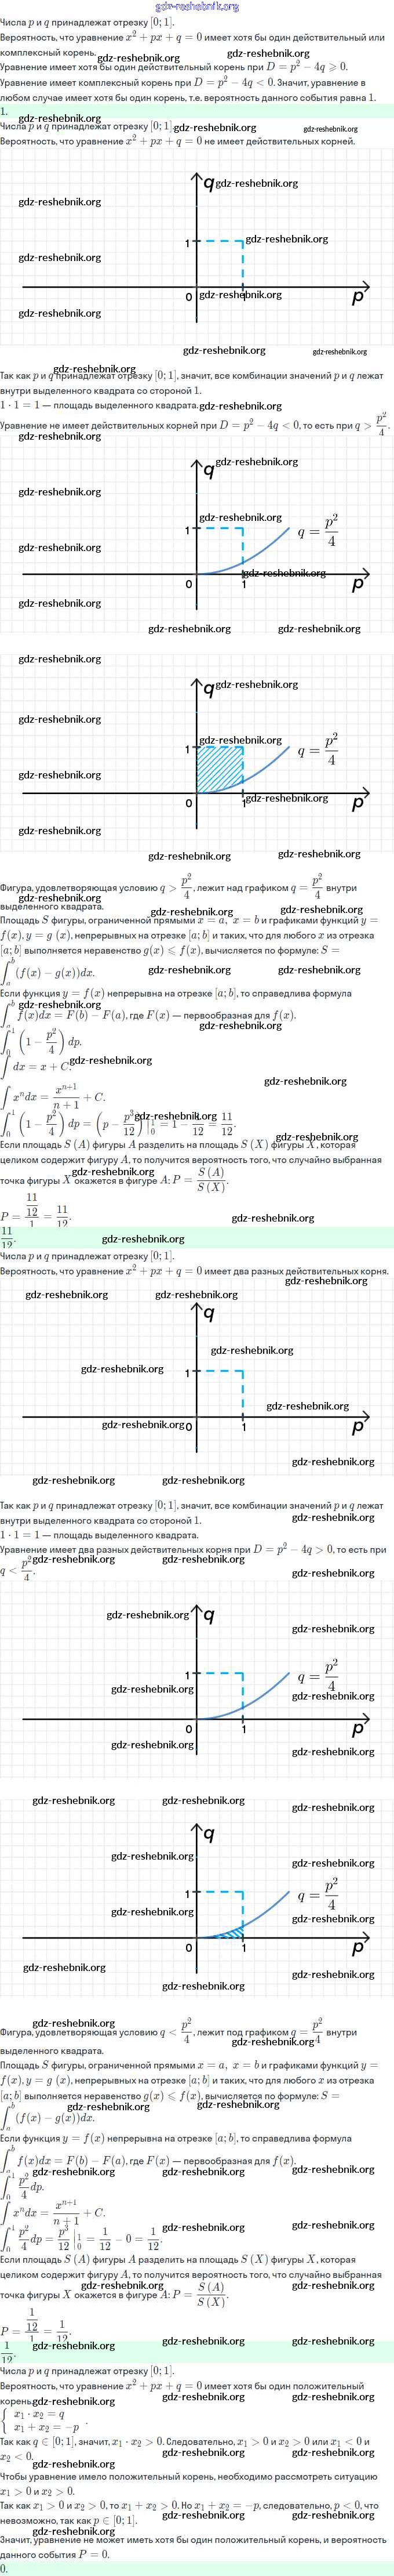 gdz-reshebnik.org
Числа p и q принадлежат отрезку [0; 1].
Вероятность, что уравнение x² + px + q = 0 имеет хотя бы один действительный или
комплексный корень.
gdz-reshebnik.org gdz-reshebnik.org
Уравнение имеет хотя бы один действительный корень при D = p² − 4q ⩾ 0.
Уравнение имеет комплексный корень при D = p² − 4q < 0. Значит, уравнение в
любом случае имеет хотя бы один корень, т.е. вероятность данного события равна 1.
1.
gdz-reshebnik.org
Числа p и q принадлежат отрезку [0; 1].
gdz-reshebnik.org gdz-reshebnik.org
Вероятность, что уравнение x² + px + q = 0 не имеет действительных корней.
q
gdz-reshebnik.org
gdz-reshebnik.org
1
gdz-reshebnik.org
gdz-reshebnik.org
0
gdz-reshebnik.org
1
p
gdz-reshebnik.org
gdz-reshebnik.org gdz-reshebnik.org
gdz-reshebnik.org
Так как p и q принадлежат отрезку [0; 1], значит, все комбинации значений p и q лежат
внутри выделенного квадрата со стороной 1.
1 · 1 = 1 — площадь выделенного квадрата.
gdz-reshebnik.org
Уравнение не имеет действительных корней при D = p² − 4q < 0, то есть при q > p²/4.
gdz-reshebnik.org
q
gdz-reshebnik.org
gdz-reshebnik.org
1
gdz-reshebnik.org
q = p²/4
gdz-reshebnik.org
gdz-reshebnik.org
0
1
p
gdz-reshebnik.org
gdz-reshebnik.org gdz-reshebnik.org
gdz-reshebnik.org
q
gdz-reshebnik.org
gdz-reshebnik.org
1
gdz-reshebnik.org
q = p²/4
gdz-reshebnik.org
0
1
gdz-reshebnik.org
p
gdz-reshebnik.org
gdz-reshebnik.org gdz-reshebnik.org
Фигура, удовлетворяющая условию q > p²/4, лежит над графиком q = p²/4 внутри
gdz-reshebnik.org
выделенного квадрата.
gdz-reshebnik.org gdz-reshebnik.org
Площадь S фигуры, ограниченной прямыми x = a, x = b и графиками функций y =
f(x), y = g (x), непрерывных на отрезке [a; b] и таких, что для любого x из отрезка
[a; b] выполняется неравенство g(x) ⩽ f(x), вычисляется по формуле: S =
∫ₐᵇ (f(x) − g(x))dx.
gdz-reshebnik.org gdz-reshebnik.org
Если функция y = f(x) непрерывна на отрезке [a; b], то справедлива формула
gdz-reshebnik.org
∫ₐᵇ f(x)dx = F(b) − F(a), где F(x) — первообразная для f(x).
gdz-reshebnik.org
∫₀¹ (1 − p²/4) dp.
∫ dx = x + C.
gdz-reshebnik.org
gdz-reshebnik.org
∫ xⁿdx = xⁿ⁺¹/(n + 1) + C.
gdz-reshebnik.org
∫₀¹ (1 − p²/4) dp = (p − p³/12) |₀¹ = 1 − 1/12 = 11/12.
gdz-reshebnik.org
Если площадь S (A) фигуры A разделить на площадь S (X) фигуры X, которая
целиком содержит фигуру A, то получится вероятность того, что случайно выбранная
gdz-reshebnik.org
точка фигуры X окажется в фигуре A: P = S (A)/S (X).
P = (11/12)/1 = 11/12.
gdz-reshebnik.org
11/12.
gdz-reshebnik.org
Числа p и q принадлежат отрезку [0; 1].
Вероятность, что уравнение x² + px + q = 0 имеет два разных действительных корня.
gdz-reshebnik.org
gdz-reshebnik.org gdz-reshebnik.org
q
gdz-reshebnik.org
gdz-reshebnik.org
1
gdz-reshebnik.org
gdz-reshebnik.org
0
1
p
gdz-reshebnik.org
gdz-reshebnik.org gdz-reshebnik.org
Так как p и q принадлежат отрезку [0; 1], значит, все комбинации значений p и q лежат
внутри выделенного квадрата со стороной 1.
gdz-reshebnik.org
1 · 1 = 1 — площадь выделенного квадрата.
Уравнение имеет два разных действительных корня при D = p² − 4q > 0, то есть при
q < p²/4.
gdz-reshebnik.org gdz-reshebnik.org gdz-reshebnik.org
gdz-reshebnik.org
q
gdz-reshebnik.org
1
q = p²/4
gdz-reshebnik.org
gdz-reshebnik.org
0
1
p
gdz-reshebnik.org
gdz-reshebnik.org
gdz-reshebnik.org gdz-reshebnik.org gdz-reshebnik.org
q
gdz-reshebnik.org
gdz-reshebnik.org
1
q = p²/4
gdz-reshebnik.org
gdz-reshebnik.org
0
1
p
gdz-reshebnik.org
gdz-reshebnik.org
gdz-reshebnik.org
gdz-reshebnik.org
Фигура, удовлетворяющая условию q < p²/4, лежит под графиком q = p²/4 внутри
gdz-reshebnik.org
выделенного квадрата.
Площадь S фигуры, ограниченной прямыми x = a, x = b и графиками функций y =
f(x), y = g (x), непрерывных на отрезке [a; b] и таких, что для любого x из отрезка
[a; b] выполняется неравенство g(x) ⩽ f(x), вычисляется по формуле: S =
gdz-reshebnik.org gdz-reshebnik.org
∫ₐᵇ (f(x) − g(x))dx.
Если функция y = f(x) непрерывна на отрезке [a; b], то справедлива формула
∫ₐᵇ f(x)dx = F(b) − F(a), где F(x) — первообразная для f(x).
gdz-reshebnik.org gdz-reshebnik.org gdz-reshebnik.org
∫₀¹ p²/4 dp.
∫ xⁿdx = xⁿ⁺¹/(n + 1) + C.
gdz-reshebnik.org gdz-reshebnik.org
∫₀¹ p²/4 dp = p³/12 |₀¹ = 1/12 − 0 = 1/12.
Если площадь S (A) фигуры A разделить на площадь S (X) фигуры X, которая
целиком содержит фигуру A, то получится вероятность того, что случайно выбранная
gdz-reshebnik.org gdz-reshebnik.org
точка фигуры X окажется в фигуре A: P = S (A)/S (X).
P = (1/12)/1 = 1/12.
gdz-reshebnik.org gdz-reshebnik.org gdz-reshebnik.org
1/12.
Числа p и q принадлежат отрезку [0; 1].
Вероятность, что уравнение x² + px + q = 0 имеет хотя бы один положительный
корень.
gdz-reshebnik.org gdz-reshebnik.org gdz-reshebnik.org
{ x₁ · x₂ = q
x₁ + x₂ = −p .
Так как q ∈ [0; 1], значит, x₁ · x₂ > 0. Следовательно, x₁ > 0 и x₂ > 0 или x₁ < 0 и
x₂ < 0.
gdz-reshebnik.org gdz-reshebnik.org gdz-reshebnik.org
Чтобы уравнение имело положительный корень, необходимо рассмотреть ситуацию
x₁ > 0 и x₂ > 0.
Так как x₁ > 0 и x₂ > 0, то x₁ + x₂ > 0. Но x₁ + x₂ = −p, следовательно, p < 0, что
невозможно, так как p ∈ [0; 1].
gdz-reshebnik.org gdz-reshebnik.org
gdz-reshebnik.org
Значит, уравнение не может иметь хотя бы один положительный корень, и вероятность
данного события P = 0.
gdz-reshebnik.org gdz-reshebnik.org
0.